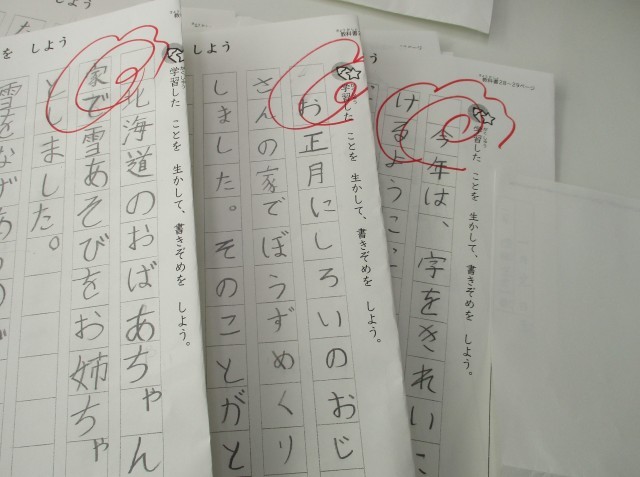 教科書28〜29ページ
学習した ことを 生かして、書きぞめを しよう。
今年は、字をきれいに
けるように
教科書2
学習した ことを 生かして、書きぞめを しよう。
お正月にしろいのおじ
さんの家でぼうずめくり
しました。そのことがと
しよう
学習した ことを 生かして、書きぞめを しよう。
北海道のおばあちゃん
家で雪あそびをお姉ちゃ
としました。
雪をなげあ
を しよう